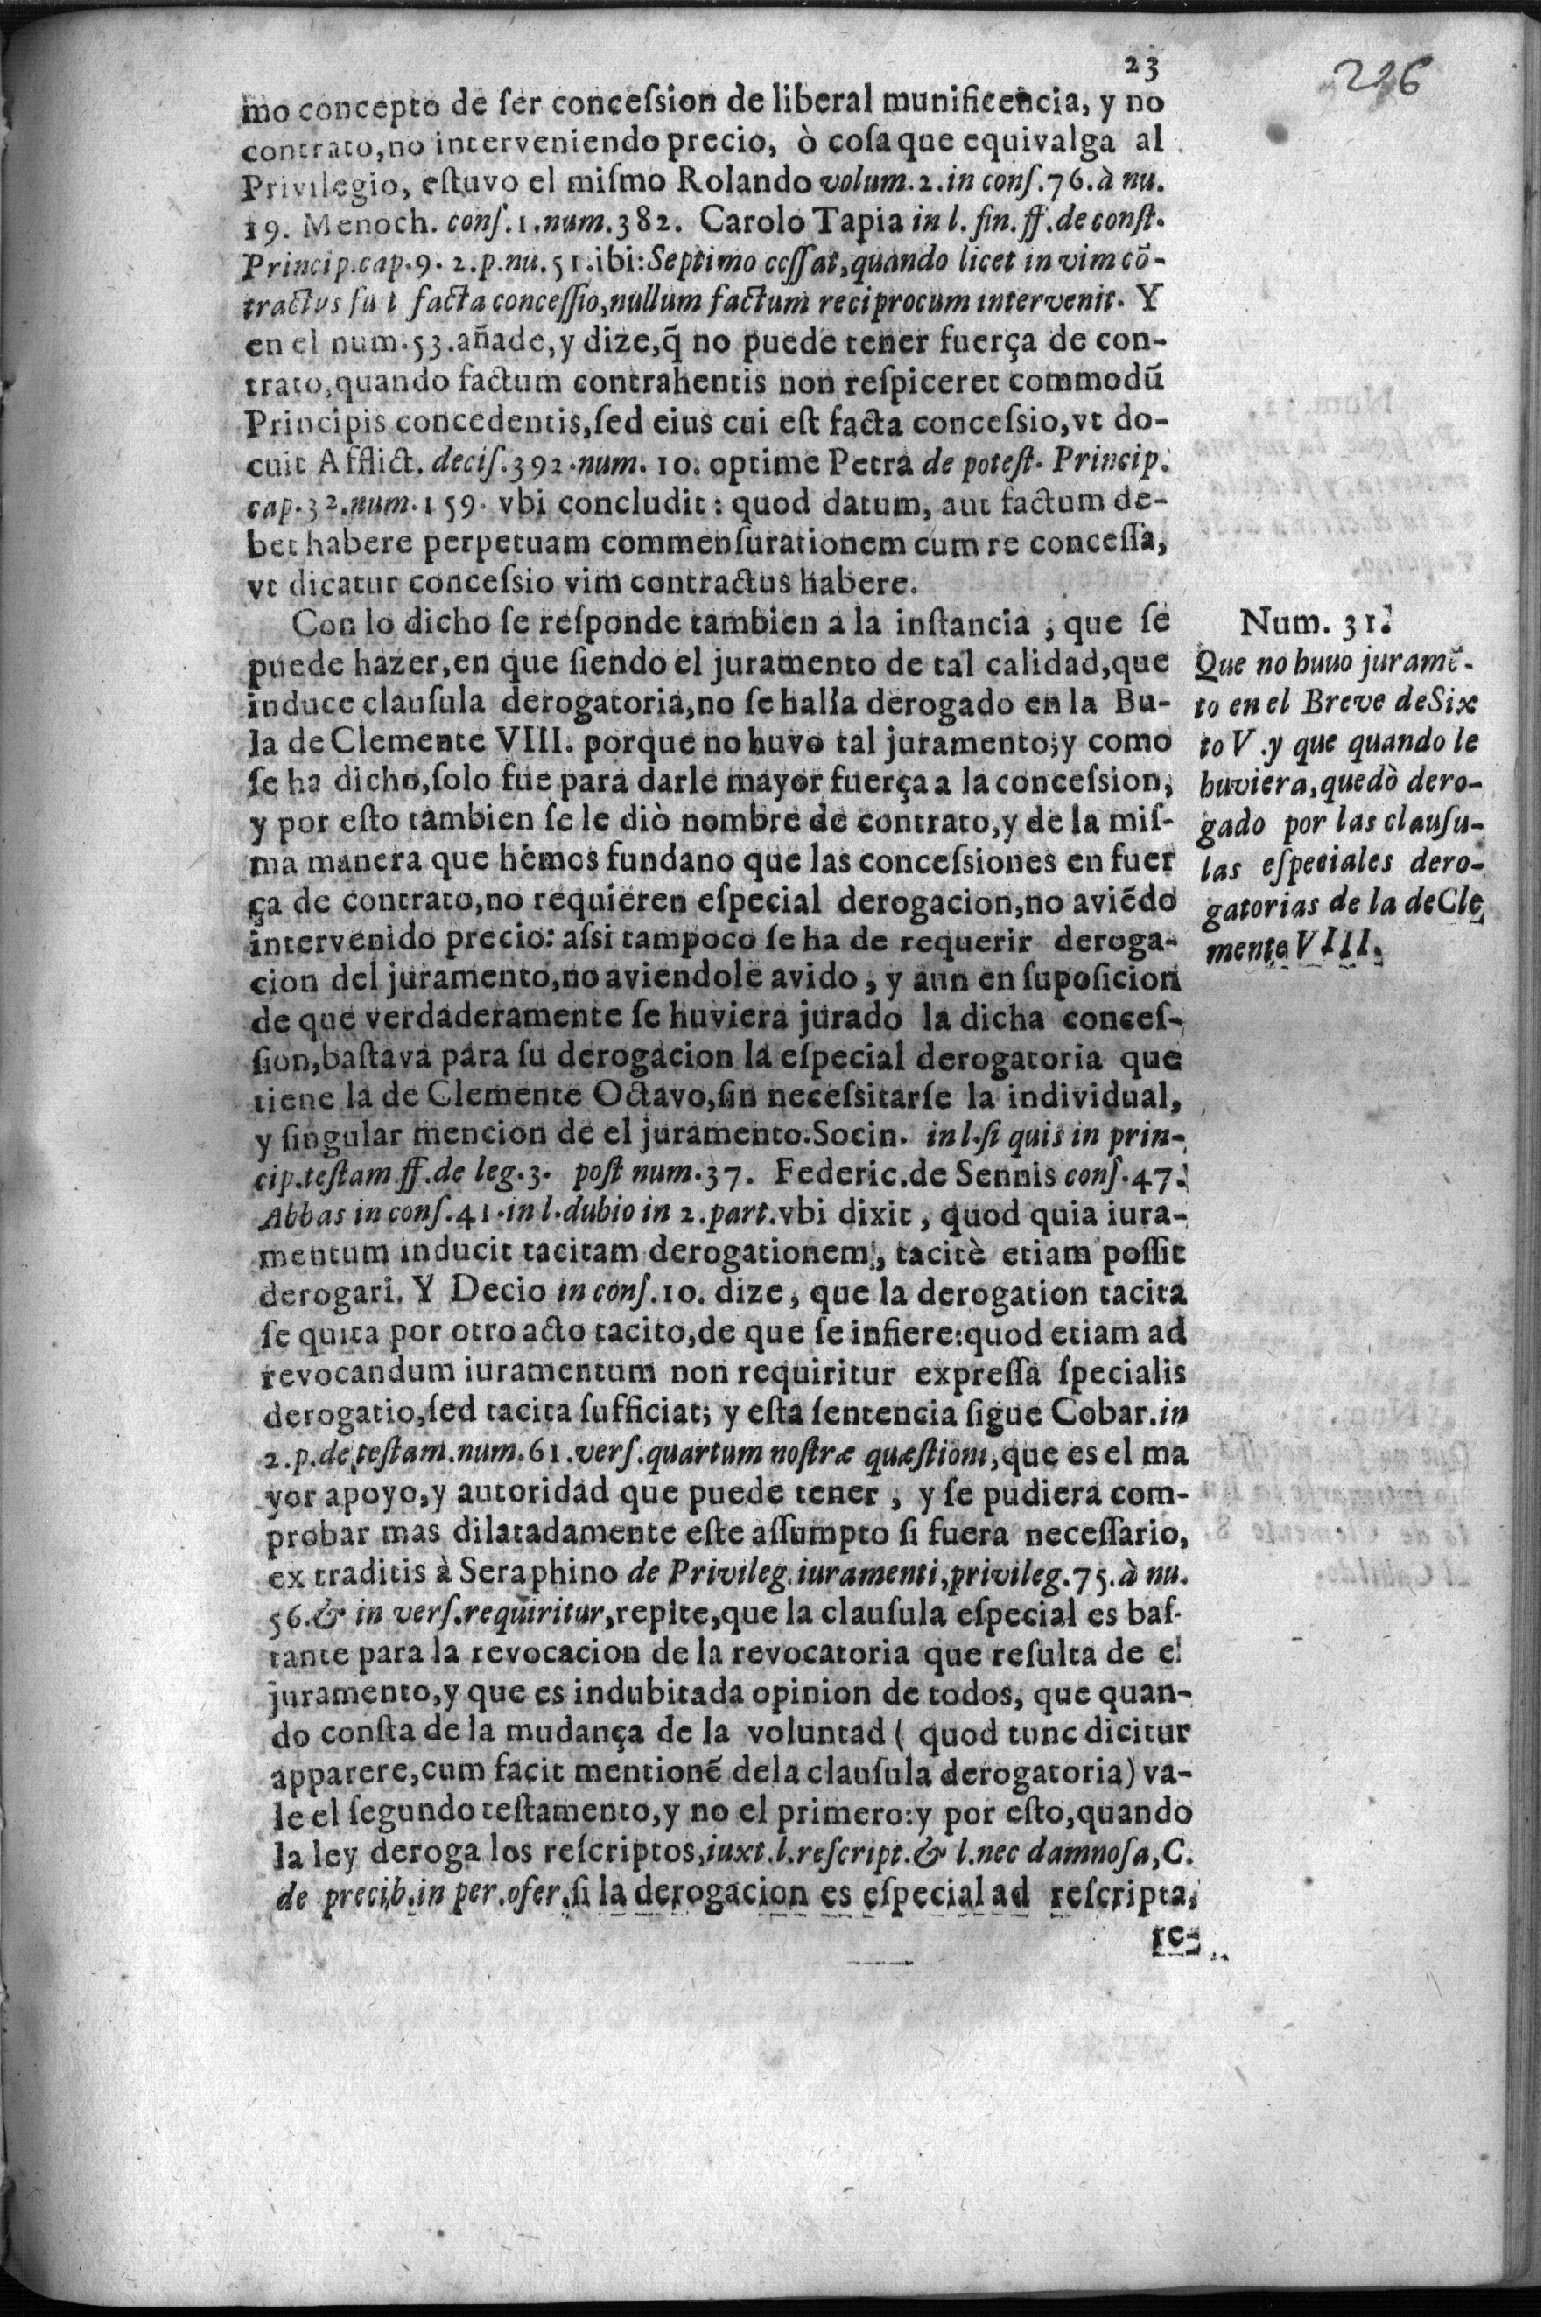 23
226
mo concepto de ſer conceſsion de liberal munificencia, y no
contrato,no interveniendo precio, ò coſa que equivalga al
Privilegio, eſtuvo el miſmo Rolando volum.2.in conſ.76.à nu.
19. Menoch. conſ.1.num.382. Carolo Tapia in l. fin. ff. de conſt.
Princip.cap.9. 2.p.nu.51.ibi:Septimo ceſſat,quando licet in vim cõ-
tractus ſu t facta conceſſio,nullum factum reciprocum intervenit. Y
en el num.53.añade,y dize,q̃ no puede tener fuerça de con-
trato,quando factum contrahentis non reſpiceret commodũ
Principis concedentis,ſed eius cui eſt facta conceſsio,vt do-
cuit Afflict. deciſ.392.num. 10. optime Petra de poteſt. Princip.
cap.32.num.159. vbi concludit: quod datum, aut factum de-
bet habere perpetuam commenſurationem cum re conceſſa,
vt dicatur conceſsio vim contractus habere.
Con lo dicho ſe reſponde tambien a la inſtancia, que ſe
puede hazer,en que ſiendo el juramento de tal calidad,que
induce clauſula derogatoria,no ſe halla derogado en la Bu-
la de Clemente VIII. porque no huvo tal juramento;y como
ſe ha dicho,ſolo fue para darle mayor fuerça a la conceſsion,
y por eſto tambien ſe le diò nombre de contrato,y de la miſ-
ma manera que hemos fundano que las conceſsiones en fuer
ça de contrato,no requieren eſpecial derogacion,no aviẽdo
intervenido precio: aſsi tampoco ſe ha de requerir deroga-
cion del juramento,no aviendole avido, y aun en ſupoſicion
de que verdaderamente ſe huviera jurado la dicha conceſ-
ſion,baſtava para ſu derogacion la eſpecial derogatoria que
tiene la de Clemente Octavo,ſin neceſsitarſe la individual,
y ſingular mencion de el juramento.Socin. in l.ſi quis in prin-
cip.teſtam ff.de leg.3. poſt num.37. Federic.de Sennis conſ.47.
Abbas in conſ.41.in l.dubio in 2.part.vbi dixit, quod quia iura-
mentum inducit tacitam derogationem, tacitè etiam poſſit
derogari. Y Decio in conſ.10. dize, que la derogation tacita
ſe quita por otro acto tacito,de que ſe infiere:quod etiam ad
revocandum iuramentum non requiritur expreſſa ſpecialis
derogatio,ſed tacita ſufficiat; y eſta ſentencia ſigue Cobar.in
2.p.de teſtam.num.61.verſ.quartum noſtræ quæſtioni,que es el ma
yor apoyo,y autoridad que puede tener, y ſe pudiera com-
probar mas dilatadamente eſte aſſumpto ſi fuera neceſſario,
ex traditis à Seraphino de Privileg.iuramenti,privileg.75.à nu.
56.& in verſ.requiritur,repite,que la clauſula eſpecial es baſ-
tante para la revocacion de la revocatoria que reſulta de el
juramento,y que es indubitada opinion de todos, que quan-
do conſta de la mudança de la voluntad ( quod tunc dicitur
apparere,cum facit mentionẽ dela clauſula derogatoria) va-
le el ſegundo teſtamento,y no el primero:y por eſto,quando
la ley deroga los reſcriptos,iuxt.l.reſcript.& l.nec damnoſa,C.
de precib.in per.ofer.ſi la derogacion es eſpecial ad reſcripta,
re-
Num. 31.
Que no huuo juramẽ-
to en el Breve de Six
to V.y que quando le
huviera,quedò dero-
gado por las clauſu-
las eſpeciales dero-
gatorias de la de Cle
mente VIII.